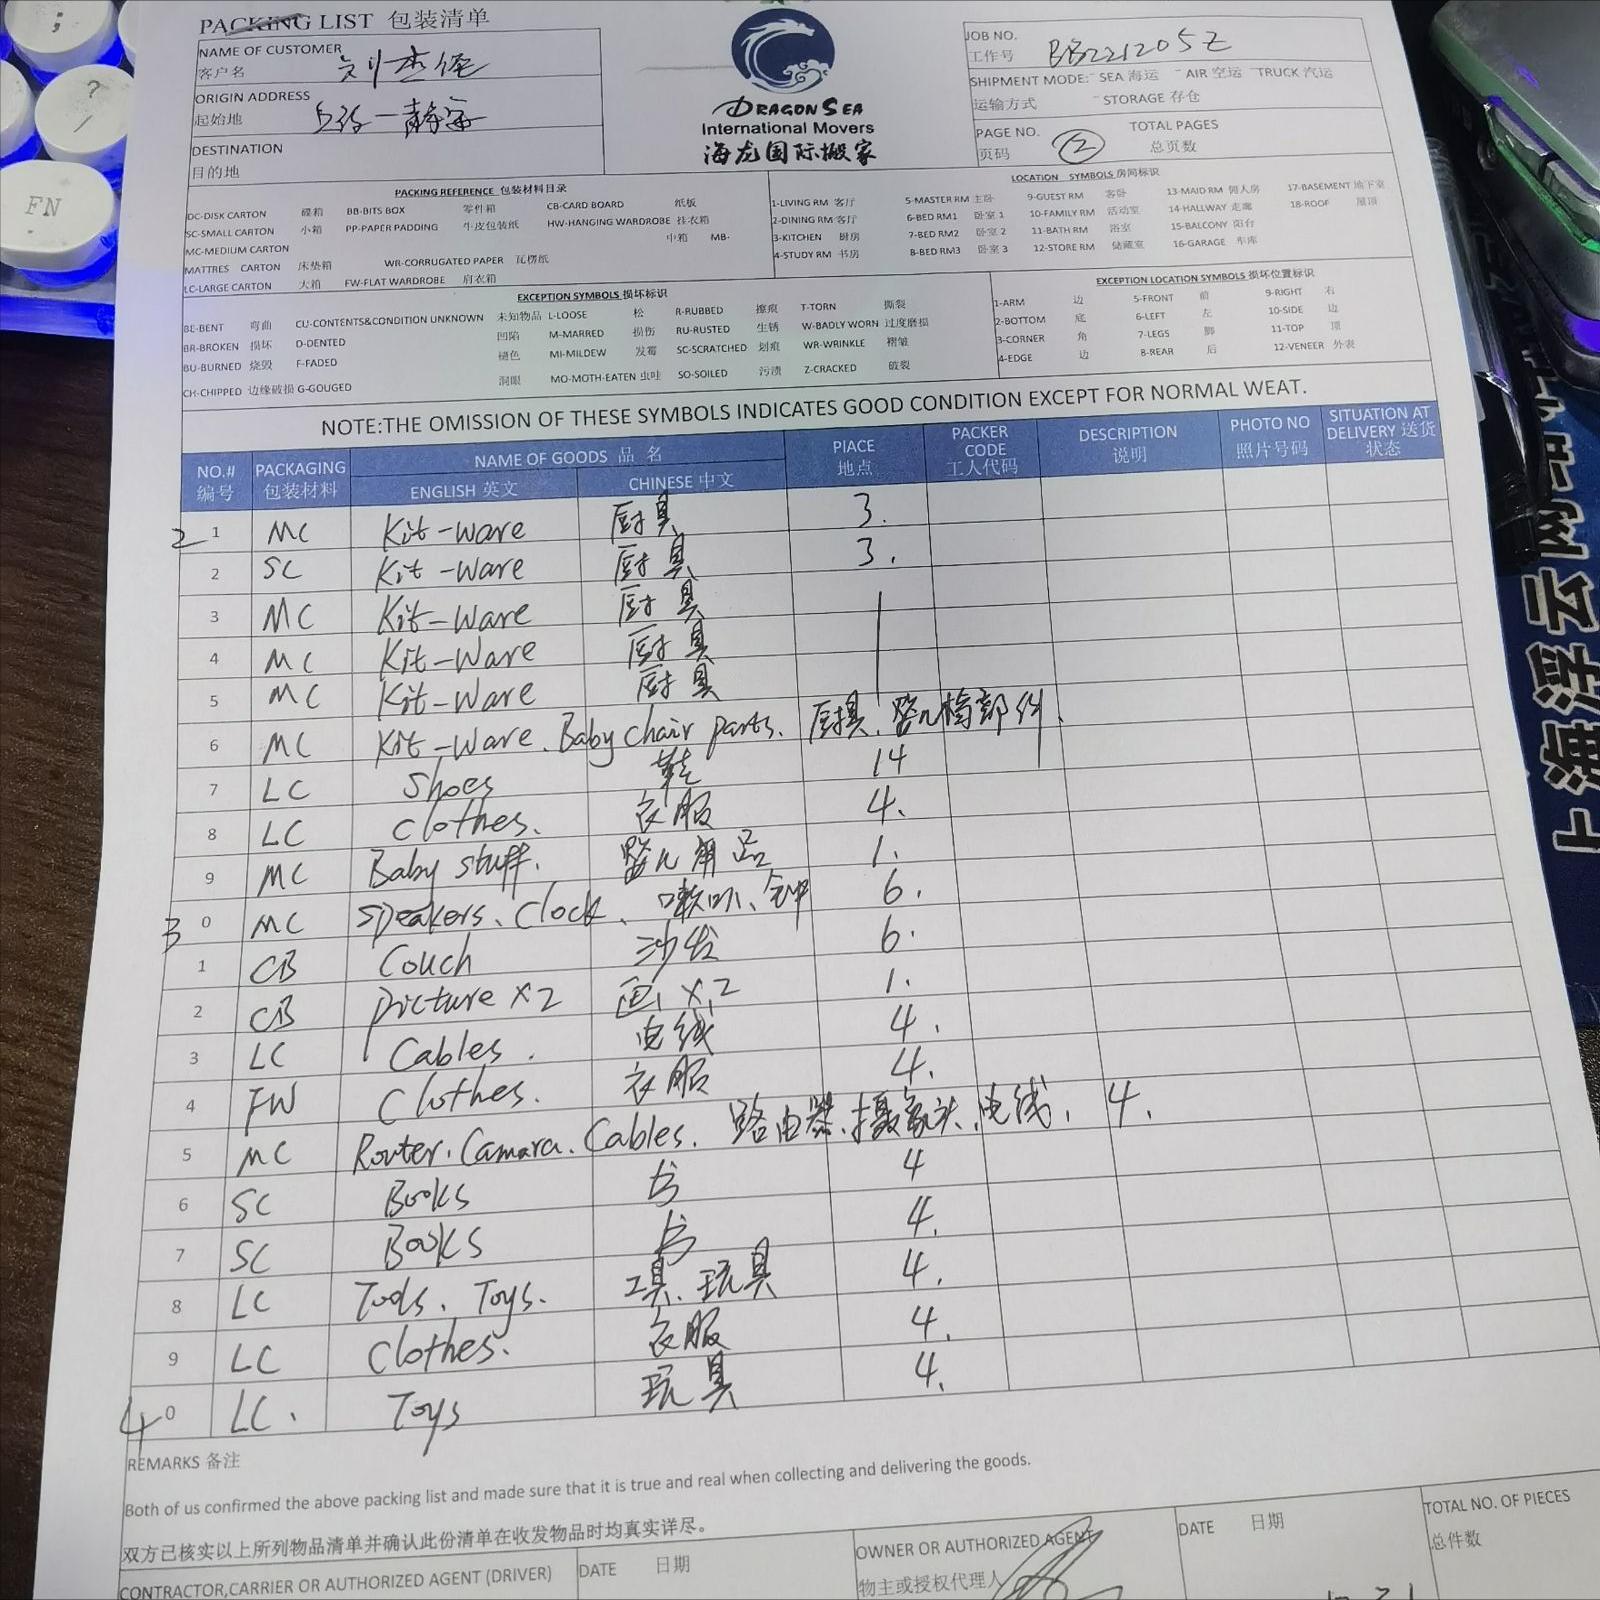 PACKING LIST 包装清单
NAME OF CUSTOMER
客户名 刘杰伦
ORIGIN ADDRESS
起始地 静安
DESTINATION
目的地
DRAGON SEA
International Movers
海龙国际搬家
JOB NO.
工作号 BB221205Z
SHIPMENT MODE: SEA 海运 AIR 空运 TRUCK 汽运
运输方式 STORAGE 存仓
PAGE NO. TOTAL PAGES
页码 2 总页数
PACKING REFERENCE 包装材料目录
DC-DISK CARTON 碟箱 BB-BITS BOX 零件箱 CB-CARD BOARD 纸板
SC-SMALL CARTON 小箱 PP-PAPER PADDING 牛皮包装纸 HW-HANGING WARDROBE 挂衣箱
MC-MEDIUM CARTON 中箱 MB-
MATTRES CARTON 床垫箱 WR-CORRUGATED PAPER 瓦楞纸
LC-LARGE CARTON 大箱 FW-FLAT WARDROBE 肩衣箱
LOCATION SYMBOLS 房间标识
1-LIVING RM 客厅 5-MASTER RM 主卧 9-GUEST RM 客卧 13-MAID RM 佣人房 17-BASEMENT 地下室
2-DINING RM 客厅 6-BED RM1 卧室 1 10-FAMILY RM 活动室 14-HALLWAY 走廊 18-ROOF 屋顶
3-KITCHEN 厨房 7-BED RM2 卧室 2 11-BATH RM 浴室 15-BALCONY 阳台
4-STUDY RM 书房 8-BED RM3 卧室 3 12-STORE RM 储藏室 16-GARAGE 车库
EXCEPTION SYMBOLS 损坏标识
BE-BENT 弯曲 CU-CONTENTS&CONDITION UNKNOWN 未知物品 L-LOOSE 松 R-RUBBED 擦痕 T-TORN 撕裂
BR-BROKEN 损坏 D-DENTED 凹陷 M-MARRED 损伤 RU-RUSTED 生锈 W-BADLY WORN 过度磨损
BU-BURNED 烧毁 F-FADED 褪色 MI-MILDEW 发霉 SC-SCRATCHED 划痕 WR-WRINKLE 褶皱
CH-CHIPPED 边缘破损 G-GOUGED 洞眼 MO-MOTH-EATEN 虫蛀 SO-SOILED 污渍 Z-CRACKED 破裂
EXCEPTION LOCATION SYMBOLS 损坏位置标识
1-ARM 边 5-FRONT 前 9-RIGHT 右
2-BOTTOM 底 6-LEFT 左 10-SIDE 边
3-CORNER 角 7-LEGS 脚 11-TOP 顶
4-EDGE 边 8-REAR 后 12-VENEER 外表
NOTE:THE OMISSION OF THESE SYMBOLS INDICATES GOOD CONDITION EXCEPT FOR NORMAL WEAT.
NO.# 编号 PACKAGING 包装材料 NAME OF GOODS 品 名 ENGLISH 英文 CHINESE 中文 PIACE 地点 PACKER CODE 工人代码 DESCRIPTION 说明 PHOTO NO 照片号码 SITUATION AT DELIVERY 送货状态
2 1 MC Kit-Ware 厨具 3.
2 SC Kit-Ware 厨具 3.
3 MC Kit-Ware 厨具
4 MC Kit-Ware 厨具
5 MC Kit-Ware 厨具
6 MC Kit-Ware、Baby chair parts. 厨具、婴儿椅部件.
7 LC Shoes 鞋 14
8 LC Clothes. 衣服 4.
9 MC Baby stuff. 婴儿用品 1.
3 0 MC Speakers、Clock、喇叭、钟 6.
1 CB Couch 沙发 6.
2 CB Picture X2 画X2 1.
3 LC Cables. 电线 4.
4 FW Clothes. 衣服 4.
5 MC Router. Camara. Cables. 路由器、摄象头、电线. 4.
6 SC Books 书 4
7 SC Books 书 4.
8 LC Tools、Toys. 工具、玩具 4.
9 LC Clothes. 衣服 4.
4 0 LC. Toys 玩具 4.
REMARKS 备注
Both of us confirmed the above packing list and made sure that it is true and real when collecting and delivering the goods.
双方已核实以上所列物品清单并确认此份清单在收发物品时均真实详尽。
CONTRACTOR,CARRIER OR AUTHORIZED AGENT (DRIVER) DATE 日期
OWNER OR AUTHORIZED AGENT
物主或授权代理人
DATE 日期
TOTAL NO. OF PIECES
总件数
;
?
/
FN
上海浮云网